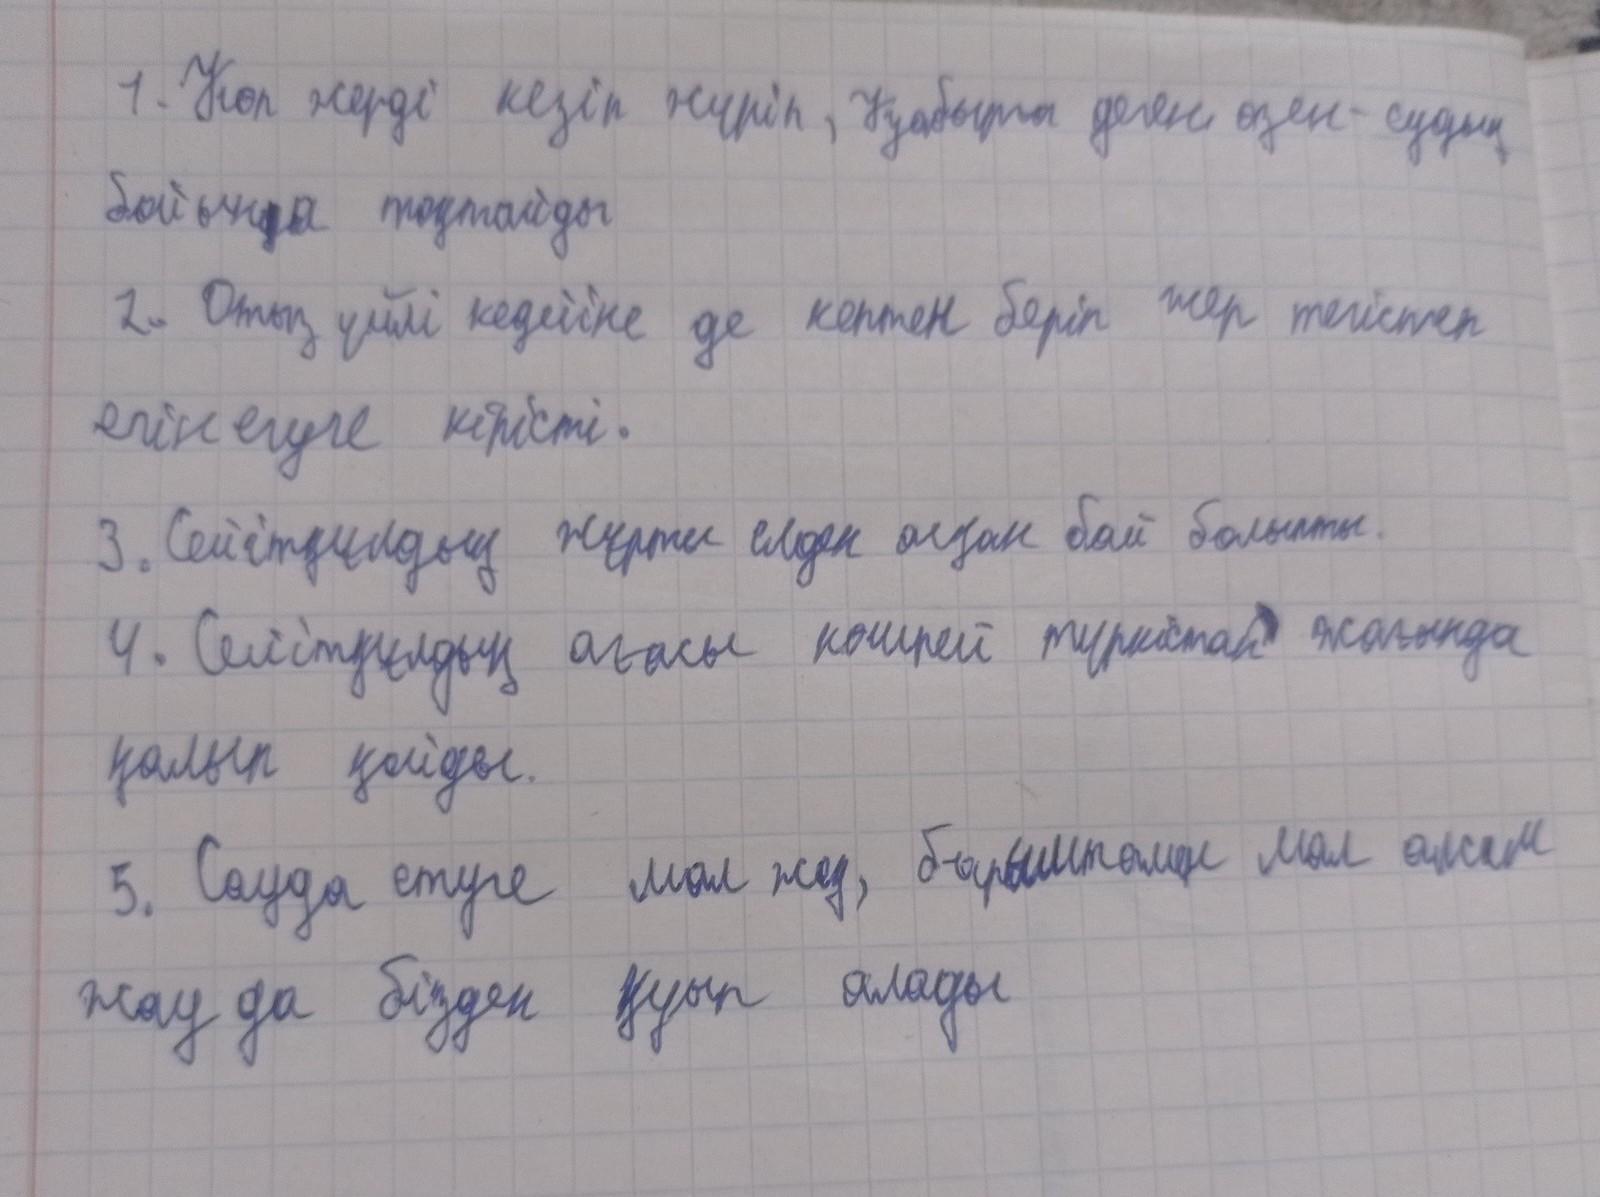 1. Көп жерді кезіп жүріп, Қабырға деген өзен-судың
бойында тоқтайды
2. Отыз үйлі кедейіне де кептен беріп жер тегістеп
егін егуге кірісті.
3. Сейітқұлдың жұрты елден асқан бай болыпты.
4. Сейітқұлдың ағасы көшпей түркістан жағында
қалып қойды.
5. Сауда етуге мал жоқ, барымтамен мал алсам
жау да бізден қуып алады